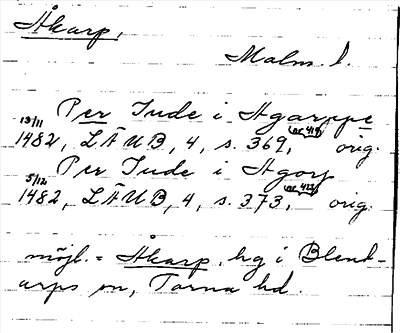 Åkarp,
Malm. l.
Per Jude i Agarppe
13/11 1482, LÄUB, 4, s. 369, (nr 414) orig.
Per Jude i Agorp
5/12 1482, LÄUB, 4, s. 373, (nr 422) orig.
möjl. = Åkarp, hg i Blent-
arps sn, Torna hd.